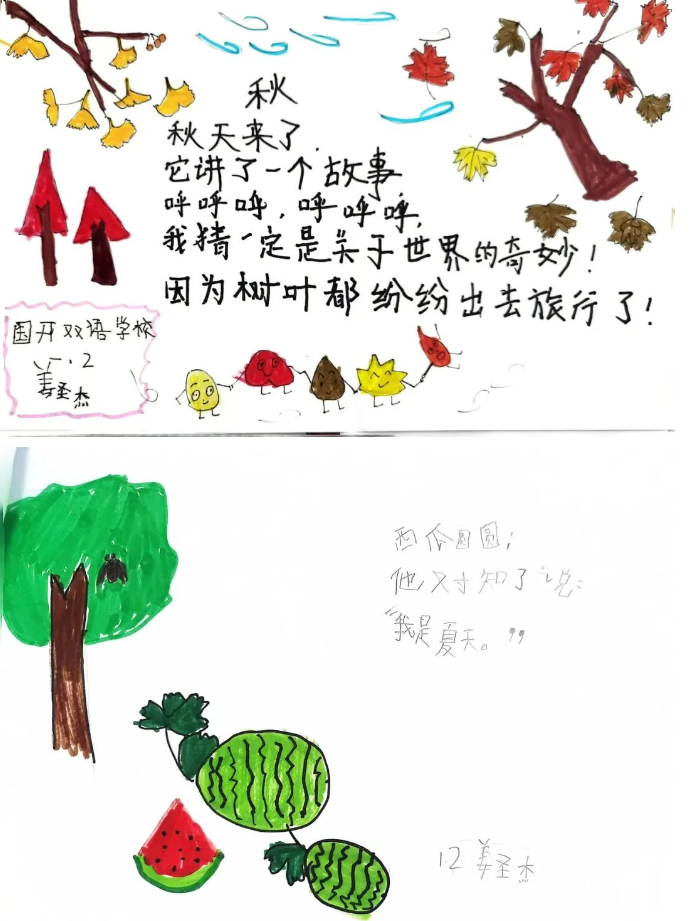 秋
秋天来了,
它讲了一个故事
呼呼呼,呼呼呼,
我猜一定是关于世界的奇妙!
因为树叶都纷纷出去旅行了!
国开双语学校
一.2
姜圣杰
西瓜圆圆;
他对知了说:
“我是夏天。”
1.2 姜圣杰